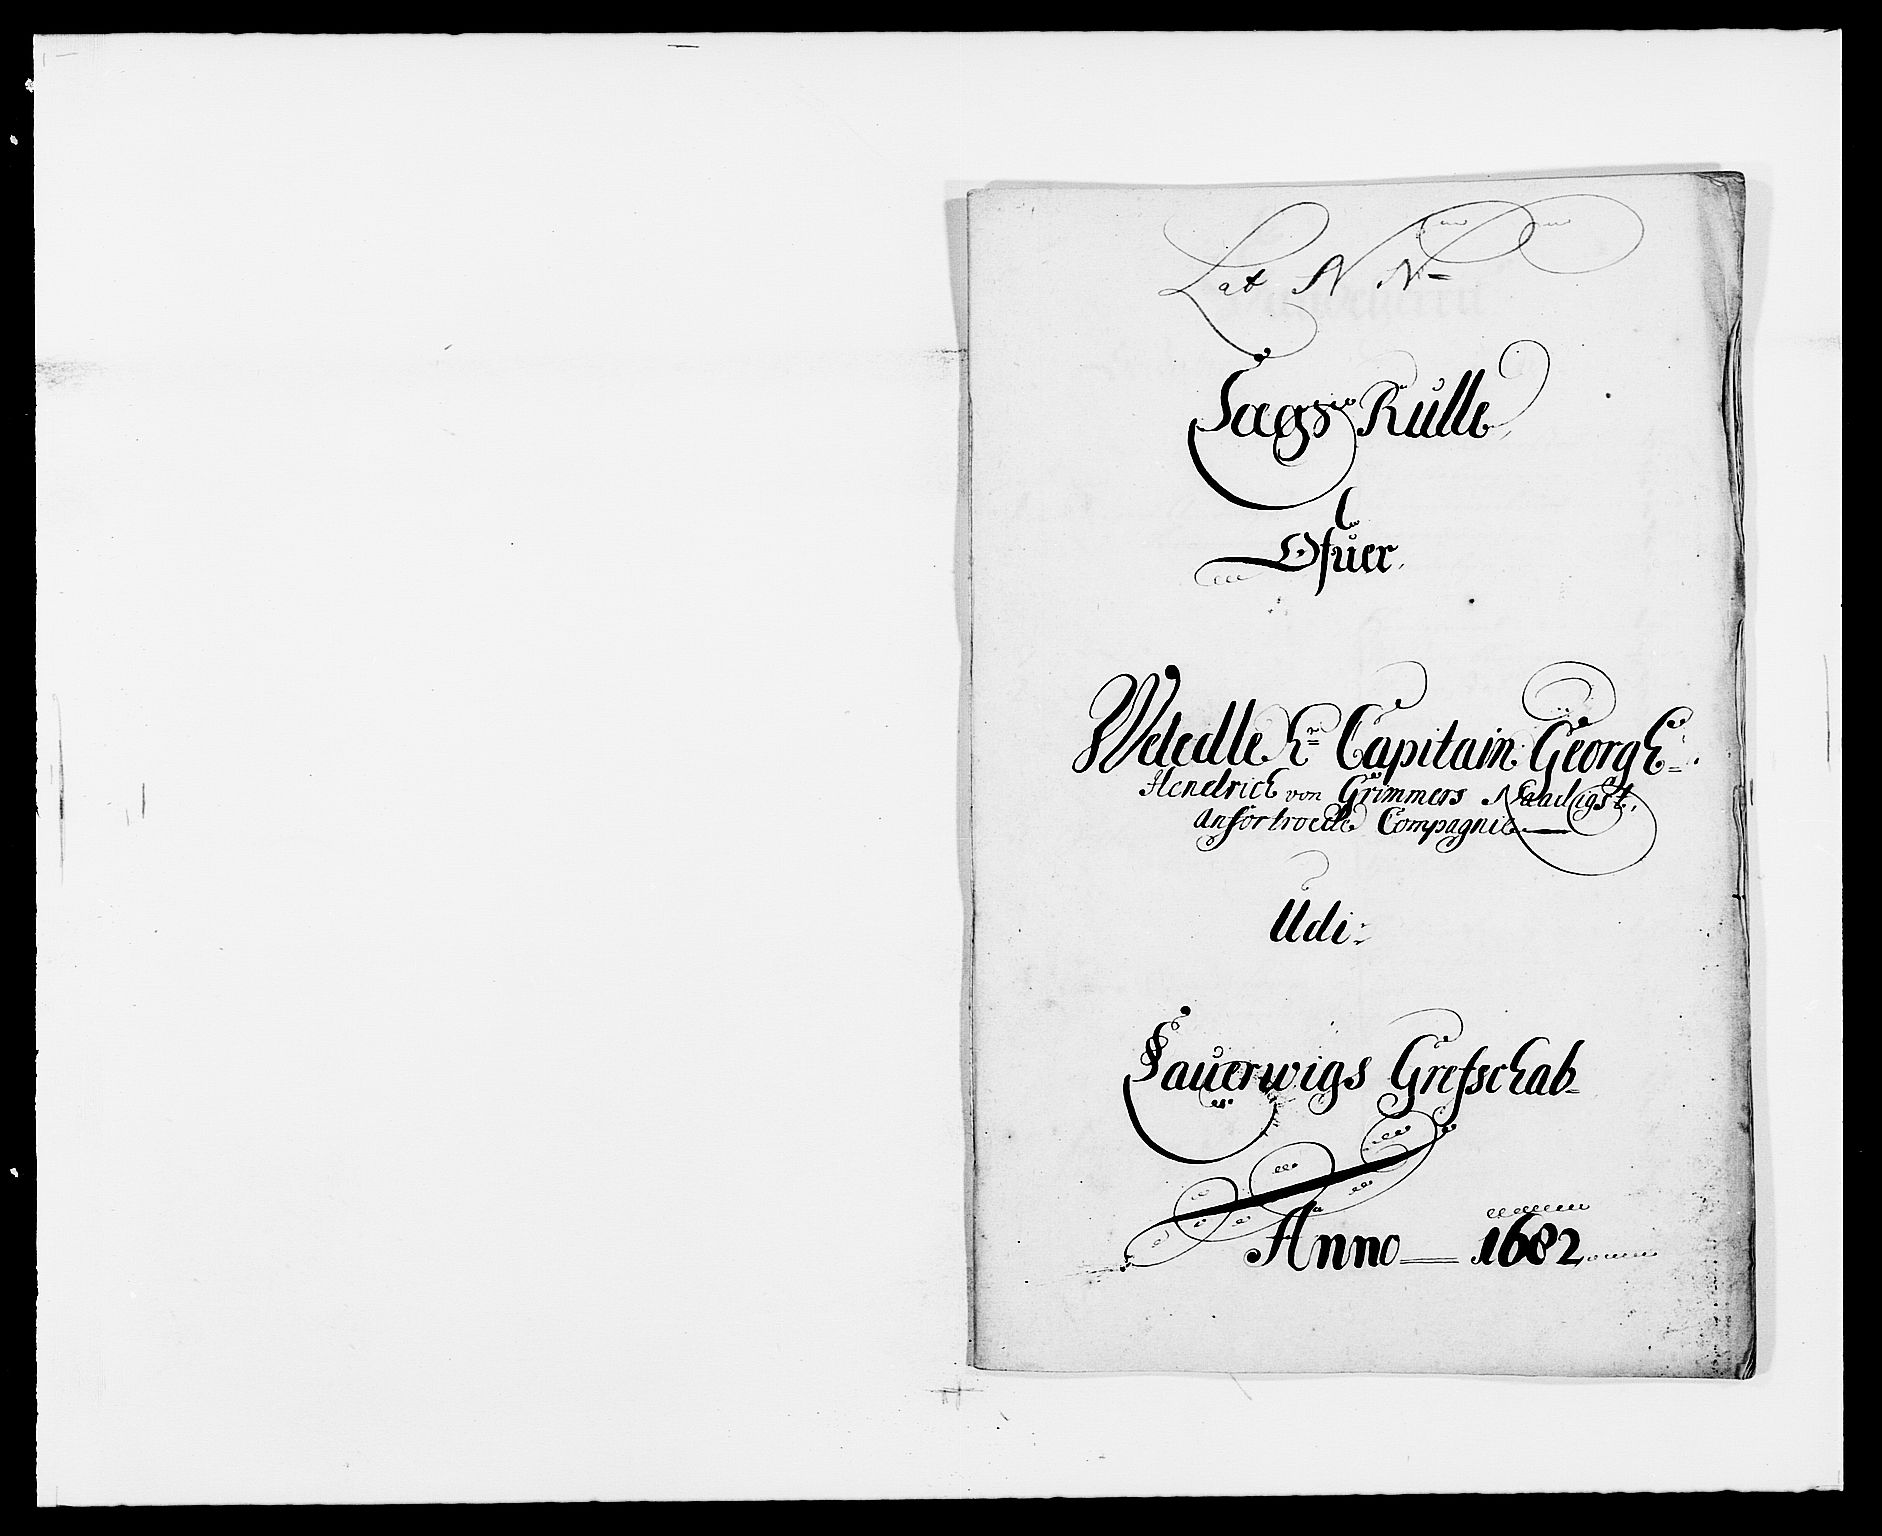 Lat N N=
Lægs Rulle
Ofuer
Weledle Hr Capitain Georg H=
Hendrich von Grimmers Naadigst,
anfortroede Compagnie
Udi:
Lauerwigs Grefschab=
Anno 1682